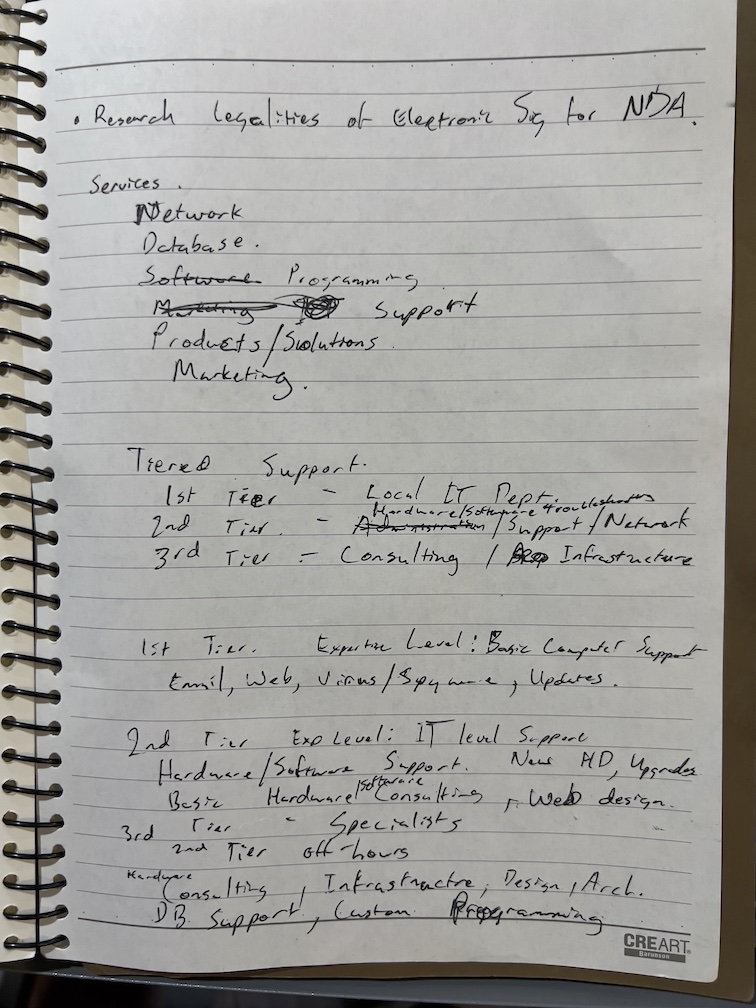 • Research Legalities of Electronic Sig for NDA.
Services.
Network
Database.
Software Programming
Marketing Support
Products/Solutions
Marketing.
Tiered Support.
1st Tier - Local IT Dept.
Hardware/Software troubleshooting
2nd Tier. - Administration/Support/Network
3rd Tier - Consulting / Infrastructure
1st Tier. Expertise Level: Basic Computer Support
Email, Web, Virus/Spyware, Updates.
2nd Tier Exp Level: IT level Support
Hardware/Software Support. New HD, Upgrades
Basic Hardware/Software Consulting, Web design.
3rd Tier - Specialists
2nd Tier off-hours
Hardware
Consulting, Infrastructre, Design, Arch.
DB Support, Custom Programming
CREART
Barunson